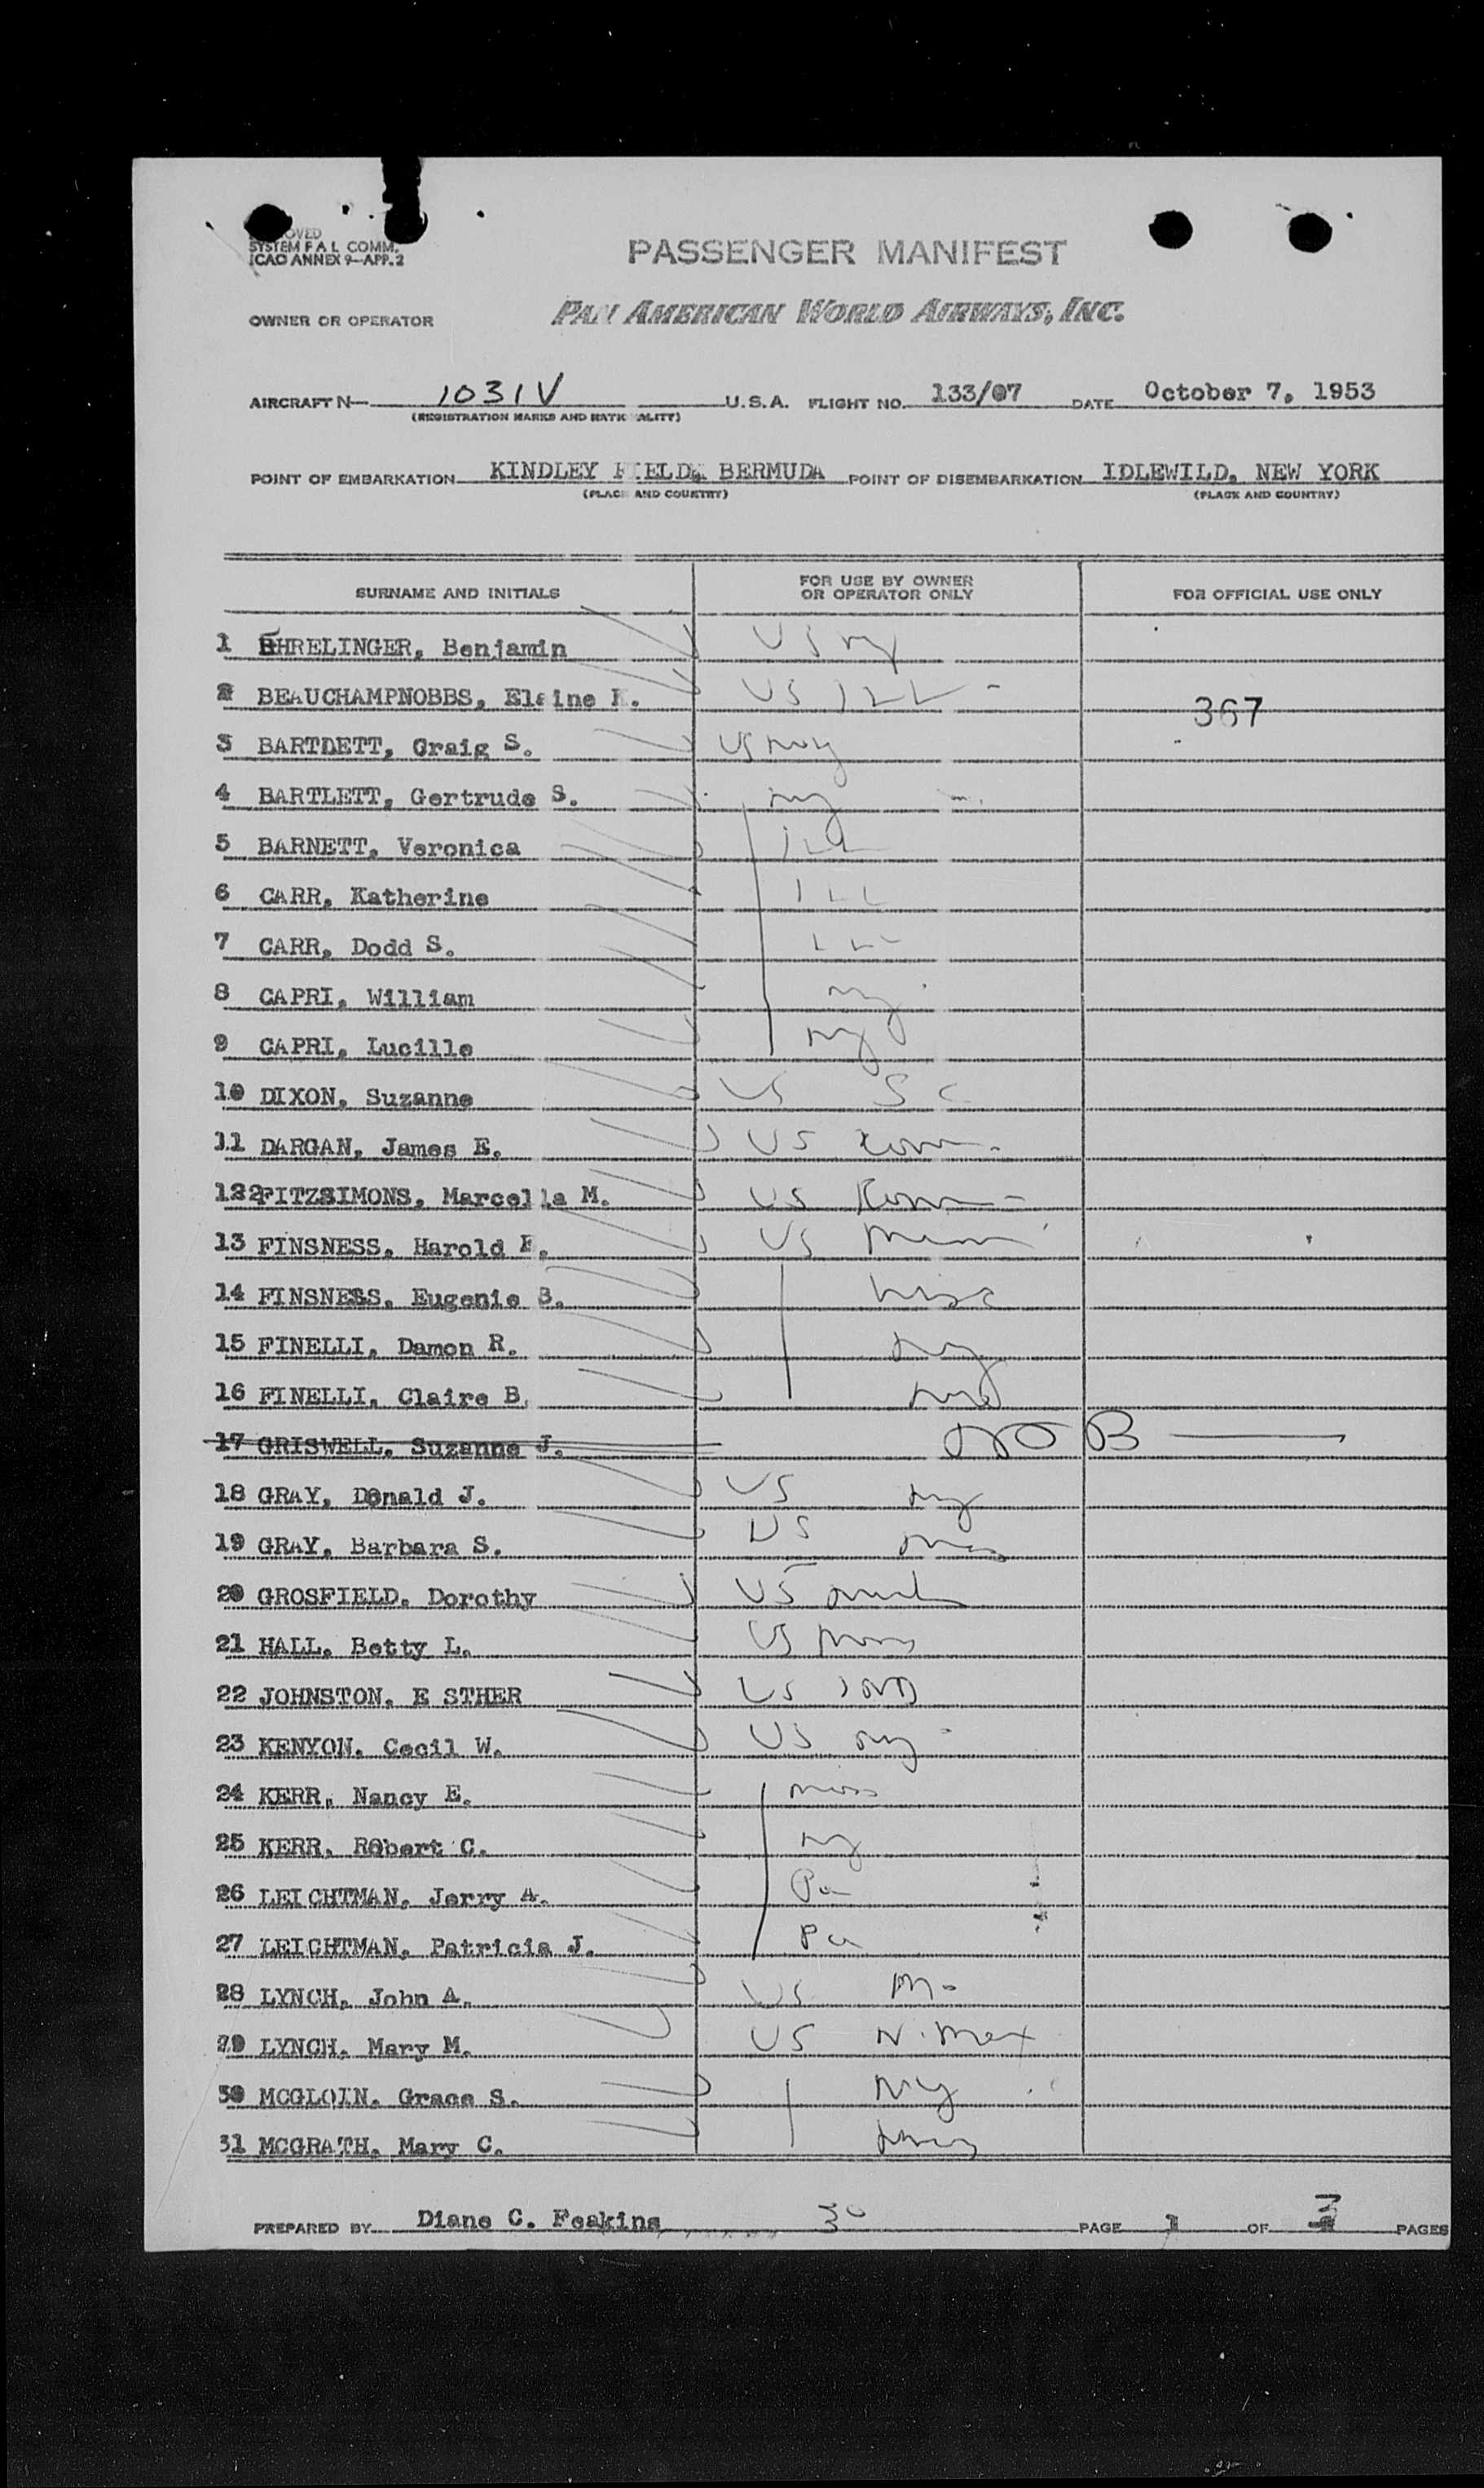 SYSTEM F A L COMM.
ICAO ANNEX 9—APP. 2
PASSENGER MANIFEST
OWNER OR OPERATOR PAN AMERICAN WORLD AIRWAYS, INC.
AIRCRAFT N— 1031V U.S.A. FLIGHT NO. 133/07 DATE October 7, 1953
(REGISTRATION MARKS AND NATIONALITY)
POINT OF EMBARKATION KINDLEY FIELD, BERMUDA POINT OF DISEMBARKATION IDLEWILD, NEW YORK
(PLACE AND COUNTRY) (PLACE AND COUNTRY)
SURNAME AND INITIALS FOR USE BY OWNER OR OPERATOR ONLY FOR OFFICIAL USE ONLY
1 EHRELINGER, Benjamin US NY
2 BEAUCHAMPNOBBS, Elaine K. US ILL
367
3 BARTDETT, Graig S. US
4 BARTLETT, Gertrude S. NY
5 BARNETT, Veronica ILL
6 CARR, Katherine ILL
7 CARR, Dodd S.
8 CAPRI, William NY
9 CAPRI, Lucille NY
10 DIXON, Suzanne US SC
11 DARGAN, James E. US Conn
12 FITZSIMONS, Marcella M. US
13 FINSNESS, Harold E. US Minn
14 FINSNESS, Eugenie B. Wisc
15 FINELLI, Damon R. NY
16 FINELLI, Claire B. NY
17 GRISWELL, Suzanne J. NOB
18 GRAY, Donald J. US NY
19 GRAY, Barbara S. US
20 GROSFIELD, Dorothy US Mich
21 HALL, Betty L. US Mass
22 JOHNSTON, E STHER US IND
23 KENYON, Cecil W. US NY
24 KERR, Nancy E. Mass
25 KERR, Robert C. NY
26 LEICHTMAN, Jerry A. Pa
27 LEICHTMAN, Patricia J. Pa
28 LYNCH, John A. US Mo
29 LYNCH, Mary M. US N. Mex
30 MCGLOIN, Grace S. NY
31 MCGRATH, Mary C.
PREPARED BY Diane C. Feakins 30 PAGE 1 OF 3 PAGES